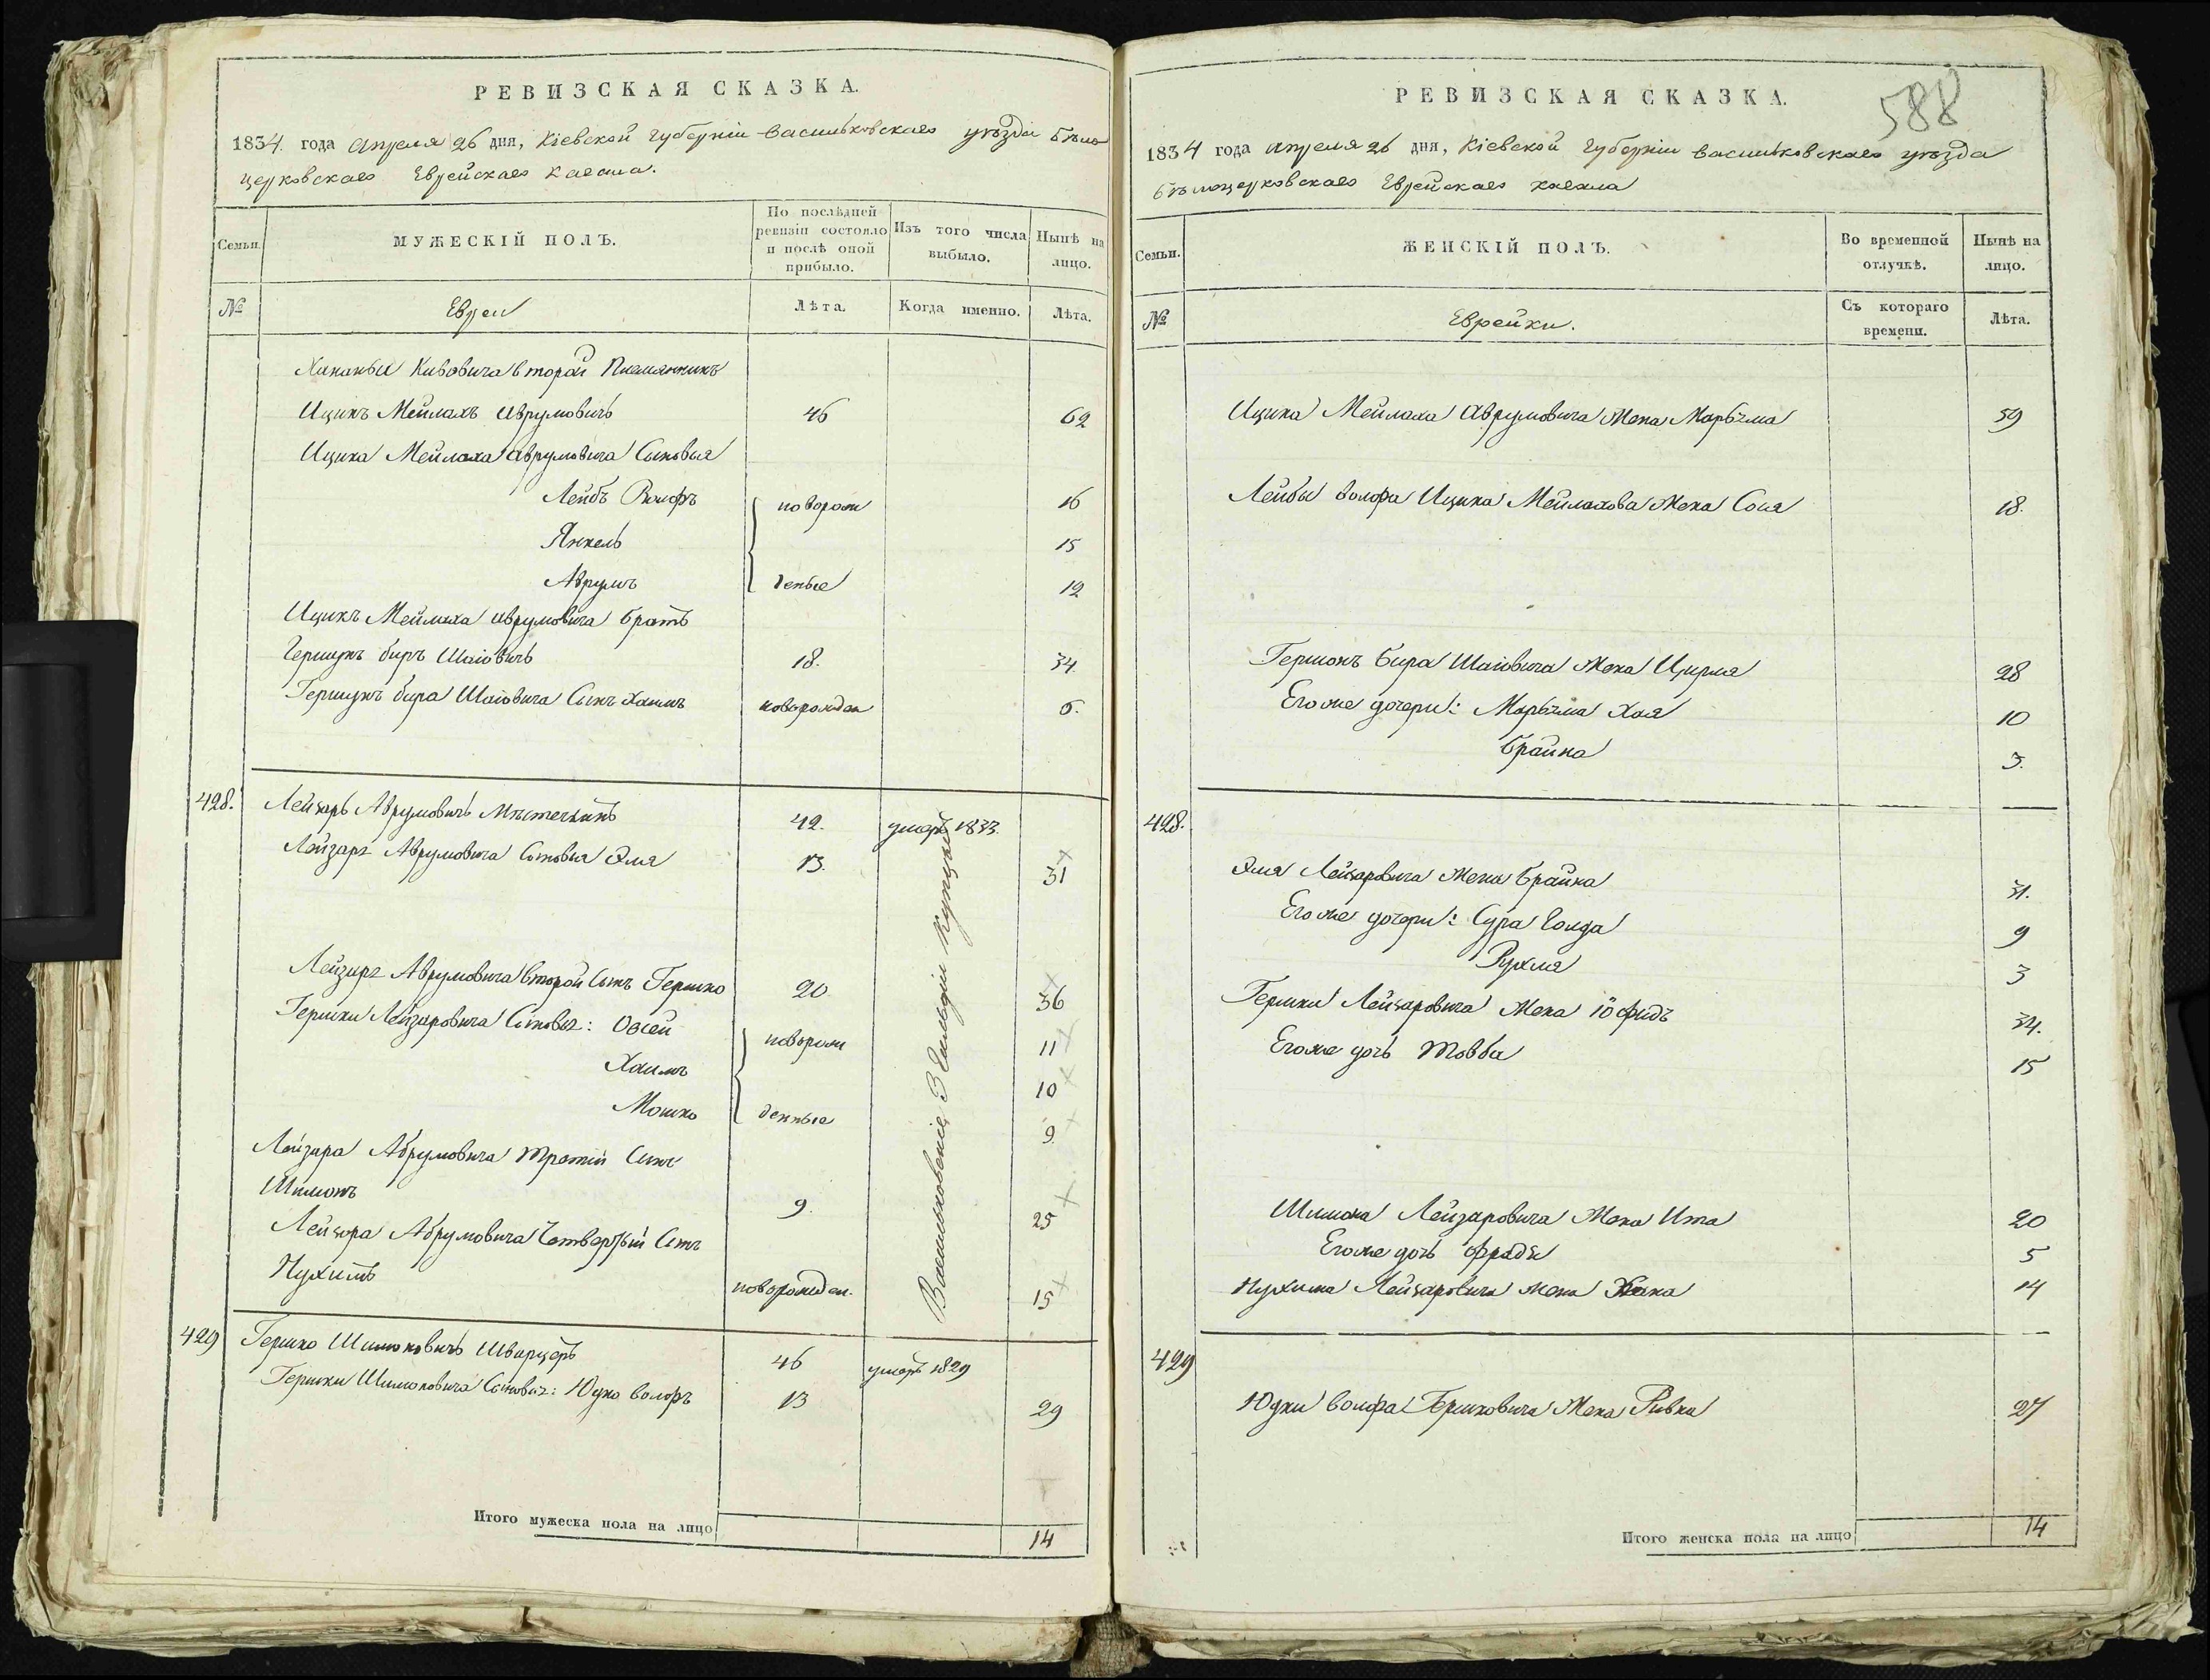 РЕВИЗСКАЯ СКАЗКА.
1834 года Апреля 26 дня, Кіевской Губерніи Васильковскаго уезда Бѣло
церковскаго Еврейскаго Кагала.
Семьи.
МУЖЕСКІЙ ПОЛЪ.
По послѣдней ревизіи состояло и послѣ оной прибыло.
Изъ того числа выбыло.
Нынѣ на лицо.
№
Евреи
Лѣта.
Когда именно.
Лѣта.
Хананьи Кивовича второй Племянникъ
Ицикъ Мейлахъ Аврумовичъ 46 62
Ицика Мейлаха Аврумовича Сыновья
Лейбъ Волфъ новорож 16
Янкель 15
Аврумъ денные 12
Ицикъ Мейлаха Аврумовича братъ
Гершунъ биръ Шаіовичъ 18. 34.
Гершунъ бира Шаіовича Сынъ Хаимъ новорожден 6.
428. Лейзаръ Аврумовичъ 42. умеръ 1833.
Лейзара Аврумовича Сыновья Эля 13. 31
Лейзара Аврумовича второй Сынъ Гершко 20 36
Гершки Лейзаровича Сыновья: Овсей новорож 11
Хаимъ 10
Мошко денные 9.
Лейзара Аврумовича третій Сынъ
Шимонъ 9. 25
Лейзора Аврумовича Четвертый Сынъ
Нухимъ новорожден. 15
Васильковскіе 3 Гильдіи Купцы
429 Гершко Шимоновичъ Шварцеръ 46 умеръ 1829
Гершки Шимоновича Сыновья: Юдко Волфъ 13 29
Итого мужеска пола на лицо 14
588
РЕВИЗСКАЯ СКАЗКА.
1834 года Апреля 26 дня, Кіевской Губерніи Васильковскаго уезда
Бѣлоцерковскаго Еврейскаго Кагала
Семьи.
ЖЕНСКІЙ ПОЛЪ.
Во временной отлучкѣ.
Нынѣ на лицо.
№
Еврейки.
Съ котораго времени.
Лѣта.
Ицика Мейлаха Аврумовича Жена Марьяма 59
Лейбы Волфа Ицика Мейлахова Жена Сося 18.
Гершонъ бира Шаіовича Жена Цирля 28
Егоже дочери: Марьяма Хая 10
Брайна 3.
428.
Эля Лейзаровича Жена Брайна 31.
Егоже дочери: Сура Голда 9
Рухля 3
Гершки Лейзаровича Жена 34.
Егоже дочь Товба 15
Шимона Лейзаровича Жена Ита 20
Егоже дочь Фрада 5
Нухима Лейзаровича Жена Хана 14
429
Юдки Волфа Гершковича Жена Ривка 27
Итого женска пола на лицо 14